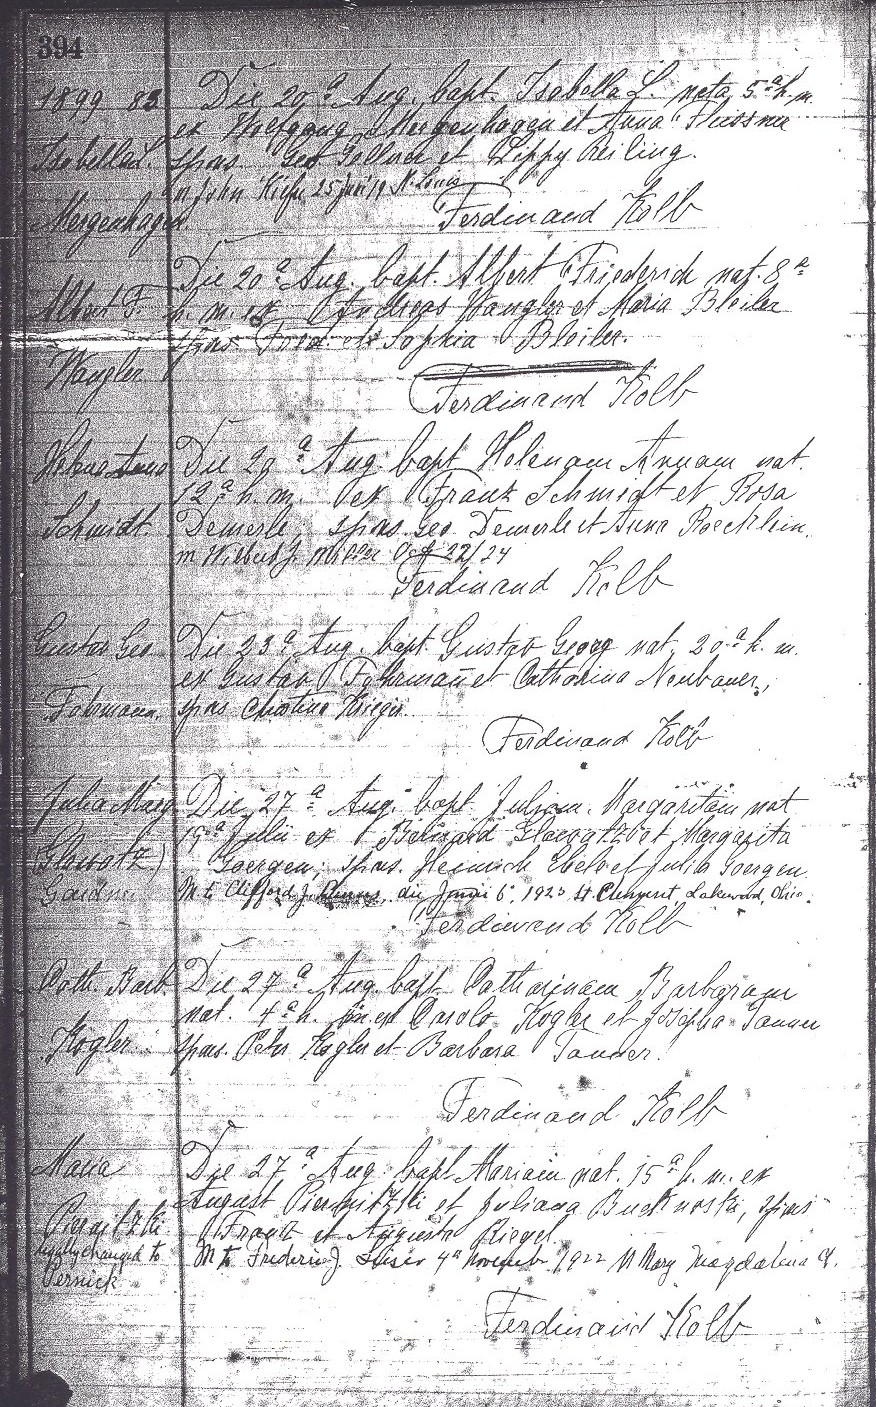 394
1899 83 Die 20ª Aug. bapt. Isabella L. nata 5ª h. m.
ex Wolfgang Mergenhagen et Anna
Isabella L. spns Geo Gollner et Lippy Reiling.
m John 25 Juni 19 St. Louis
Mergenhagen Ferdinand Kolb
Die 20ª Aug. bapt. Albert Friederich nat. 8ª
Albert F. h. m. ex Andreas Wangler et Maria Bleiler
spns. Fred. et Sophia Bleiler.
Wangler
Ferdinand Kolb
Helena Anna Die 20ª Aug. bapt Helenam Annam nat.
12ª h. m. ex Frank Schmidt et Rosa
Schmidt. Demerle, spns. Geo Demerle et Anna Roecklein.
m Wilbert J. Oct 22/24
Ferdinand Kolb
Gustav Geo Die 23ª Aug. bapt. Gustav Georg nat. 20ª h. m.
ex Gustav Fohrmann et Catharina Neubauer,
Fohrmann, spns Christine Krieger.
Ferdinand Kolb
Julia Marg. Die 27ª Aug. bapt Juliam Margaritam nat
19ª Julii ex Bernard Glowatz et Margarita
(Glowatz) Goergen; spns. Heinrich Ebele et Julia Goergen.
Gardner M to Clifford J. die Junii 6, 1923 St. Clement, Lakewood, Ohio.
Ferdinand Kolb
Cath. Barb. Die 27ª Aug. bapt. Catharinam Barbaram
nat. 4ª h. m. ex Carolo Kogler et Josepha Tanner
Kogler spns. Peter Kogler et Barbara Tanner.
Ferdinand Kolb
Maria Die 27ª Aug. bapt Mariam nat. 15ª h. m. ex
August Piernitzki et Juliana Bucknoski, spns
Piernitzki Franz et Augusta Riegel.
legally changed to M to Frederic J. 4ª November 1922 St Mary Magdalena Ch.
Pernick
Ferdinand Kolb